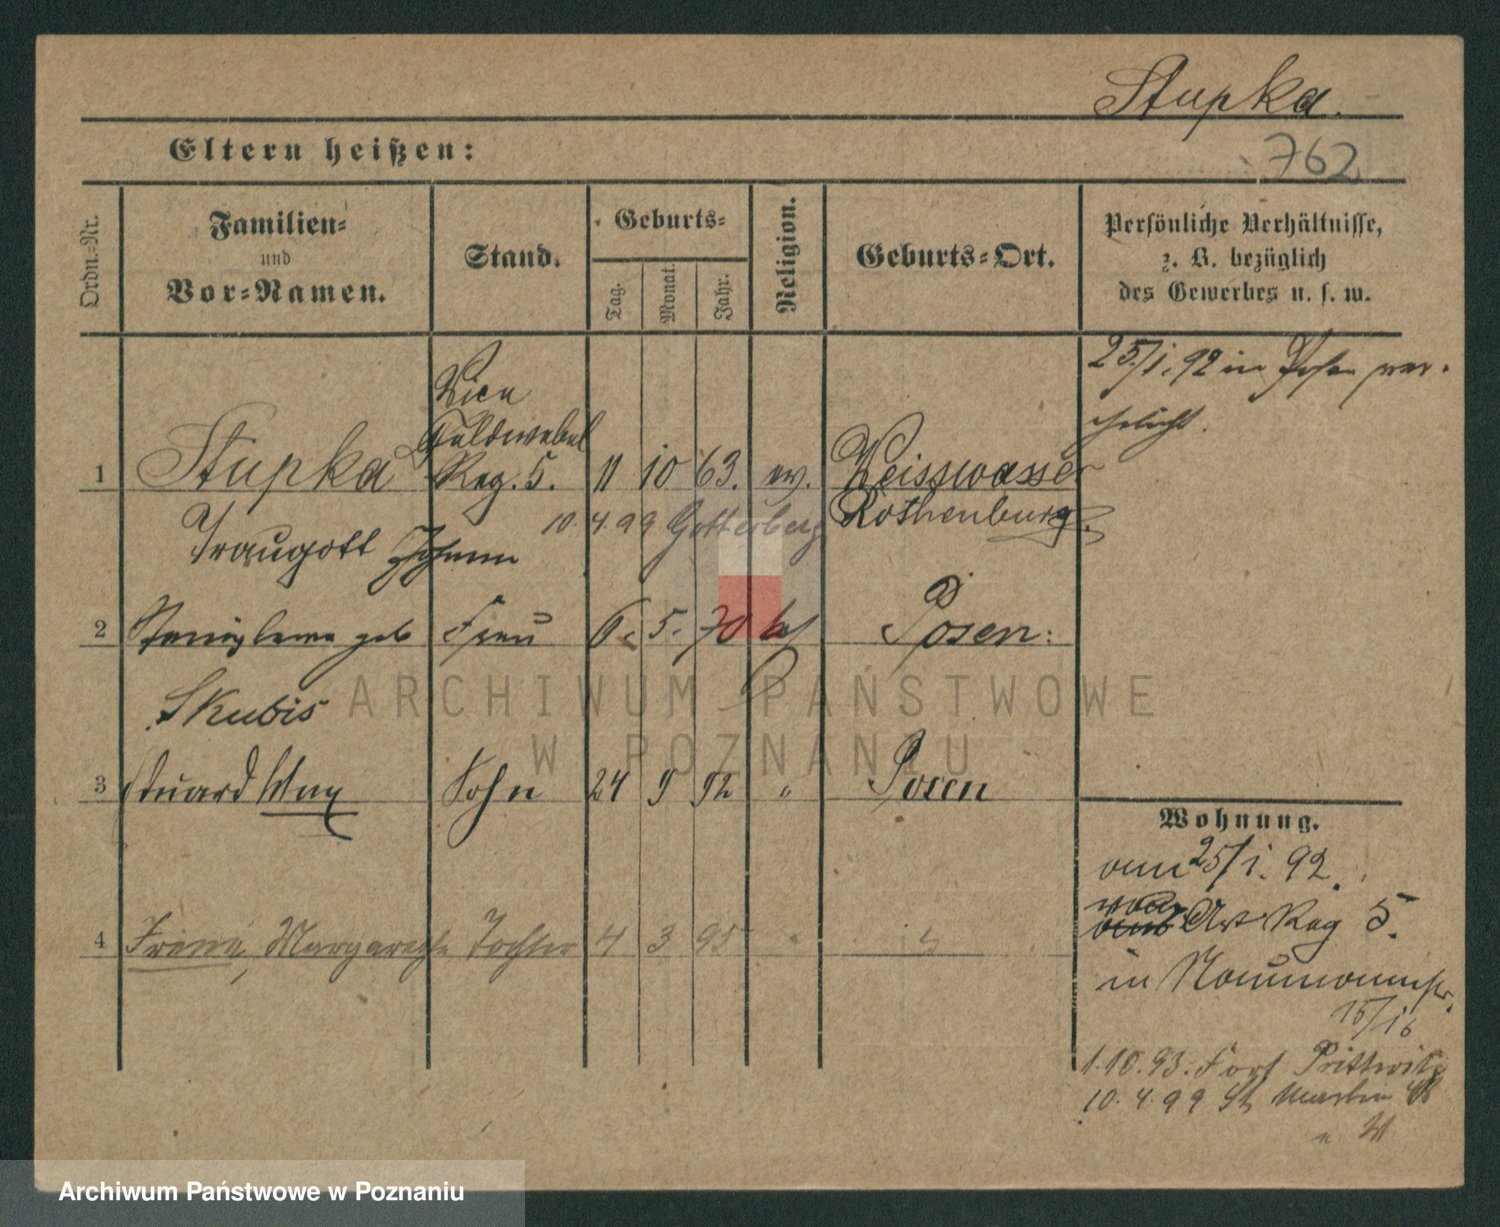 Stupka.
Eltern heißen:
762
Ordn.-Nr.
Familien-
und
Vor-Namen.
Stand.
Geburts-
Tag.
Monat.
Jahr.
Religion.
Geburts-Ort.
Persönliche Verhältnisse,
z. B. bezüglich
des Gewerbes u. s. w.
25/1. 92 in Posen ver-
ehelicht.
Vice
Feldwebel
1 Stupka Reg. 5. 11 10 63. ev. Weisswasser
10. 4. 99 Rothenburg.
Traugott Johann
2 Stanislawa geb Frau 6. 5. 70 kath Posen.
Skubis
3 Eduard Max Sohn 24 9 92 " Posen
4 Irene, Margarethe Tochter 4 3 95
Wohnung.
25/1. 92.
Art Reg 5.
in Naumannstr.
15/16
1.10.93. Fort Prittwitz
10. 4. 99 St Martin
ARCHIWUM PAŃSTWOWE
W POZNANIU
Archiwum Państwowe w Poznaniu